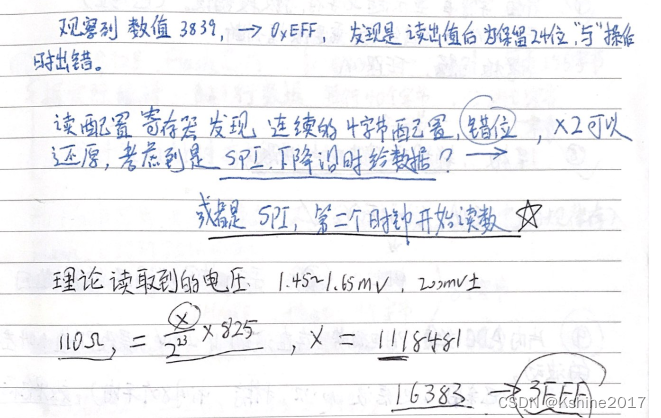 观察到 数值 3839, → 0xEFF, 发现是 读出值后 为保留24位"与"操作
时出错。
读配置 寄存器 发现 连续的4字节配置, 错位, ×2可以
还原, 考虑到是 SPI. 下降沿时给数据? →
或者是 SPI, 第二个时钟开始读数 ☆
理论 读取到的电压 1.45~1.65mV, 200mV±
110Ω, = X/2^23 ×825, X = 1118481
16383 → 3FFF
CSDN @Kshine2017